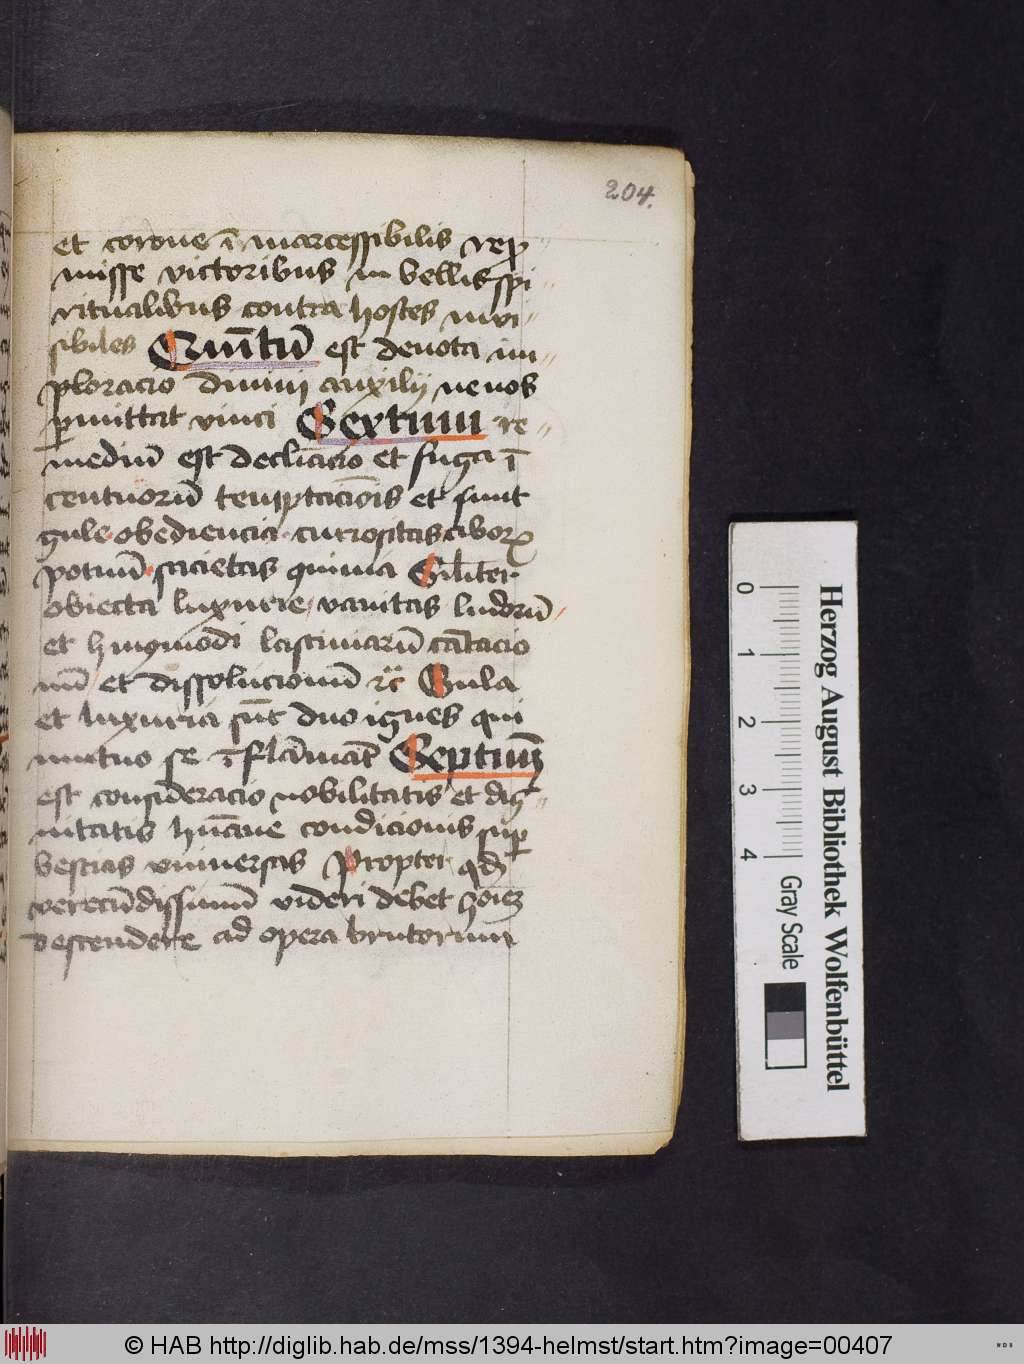 204.
et corone ī marcessibilis rep
misse victoribus in bellis spi
ritualibus contra hostes invi
sibiles Quītū est devota im
ploracio divini auxilij ne nos
permittat vinci Sextum re
mediū est declīacio et fuga ī
centivorū temptacionis et sunt
gule obediencia curiositas ciborꝝ
potuū sacietas nimia Silit̄er
obiecta luxurie vanitas ludorū
et hmōi lasciviarū cātacio
nū et dissolucionū ⁊c̄ Gula
et luxuria sūt duo ignes qui
mutuo se īflāmāt Septimū
est consideracio nobilitatis et dig
nitatis hūane condicionis super
bestias universas Propter qd̄
verecūdissimū videri debet hoīez
descendere ad opera brutorum
Herzog August Bibliothek Wolfenbüttel
0 1 2 3 4 Gray Scale
© HAB http://diglib.hab.de/mss/1394-helmst/start.htm?image=00407